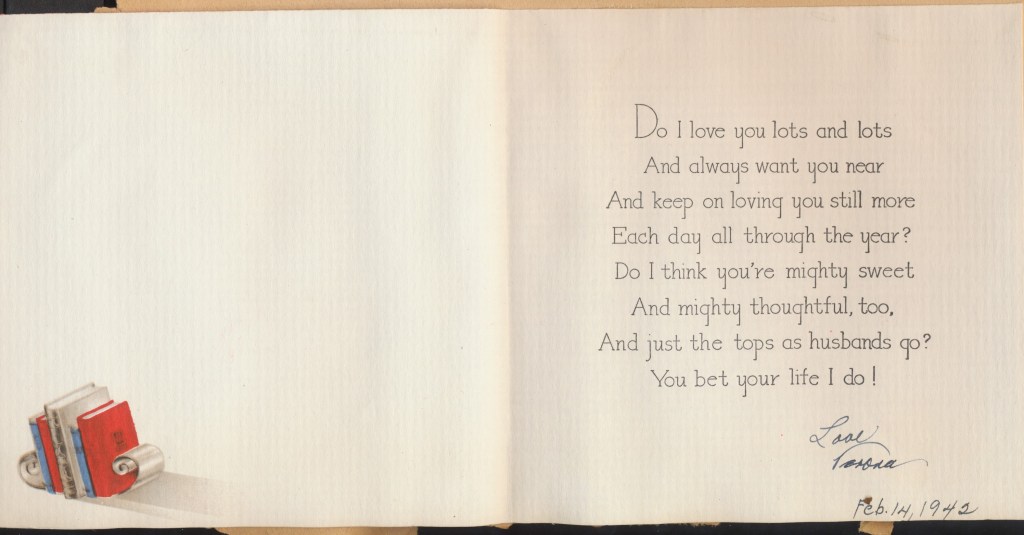 Do I love you lots and lots
And always want you near
And keep on loving you still more
Each day all through the year?
Do I think you're mighty sweet
And mighty thoughtful, too,
And just the tops as husbands go?
You bet your life I do!
Love
Verona
Feb. 14, 1942